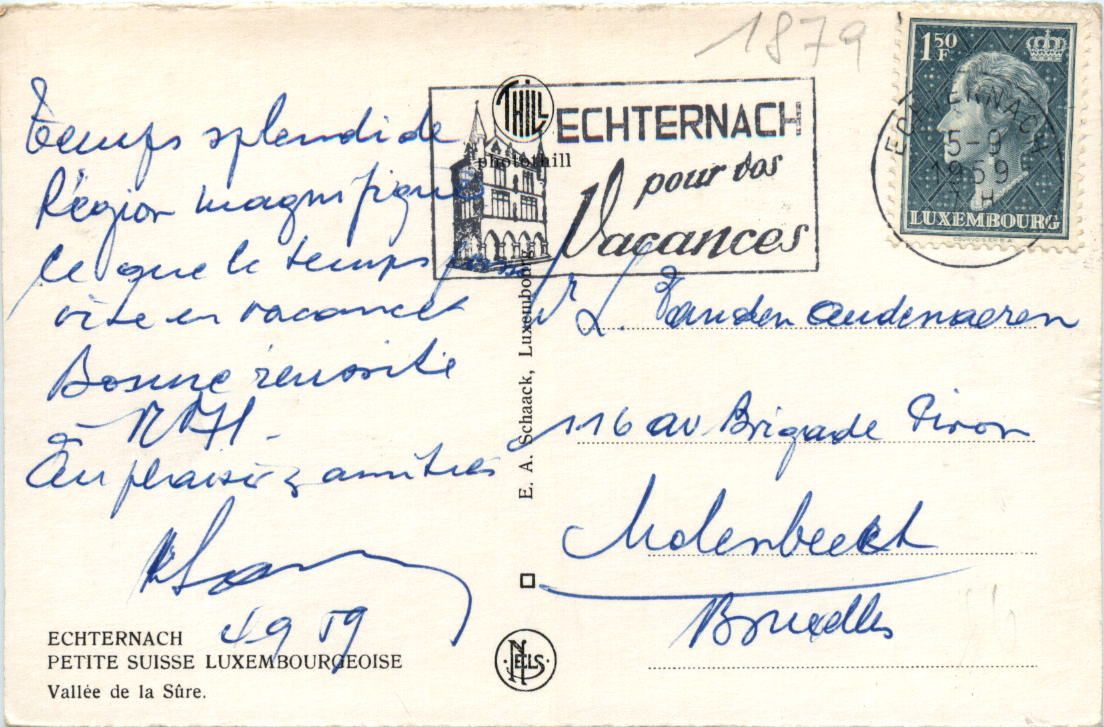 1879
Temps splendide
Région magnifique
Ce que le temps passe
vite en vacances
Bonne réussite
à
Au plaisir & amitiés
4 9 59
ECHTERNACH
PETITE SUISSE LUXEMBOURGEOISE
Vallée de la Sûre.
THILL
photothill
E. A. Schaack, Luxembourg.
NELS
ECHTERNACH
pour vos
Vacances
1.50 F
LUXEMBOURG
COURVOISIER
ECHTERNACH
5-9
1959
7 H
Mr L. Vanden Audenaeren
116 av Brigade Piron
Molenbeek
Bruxelles